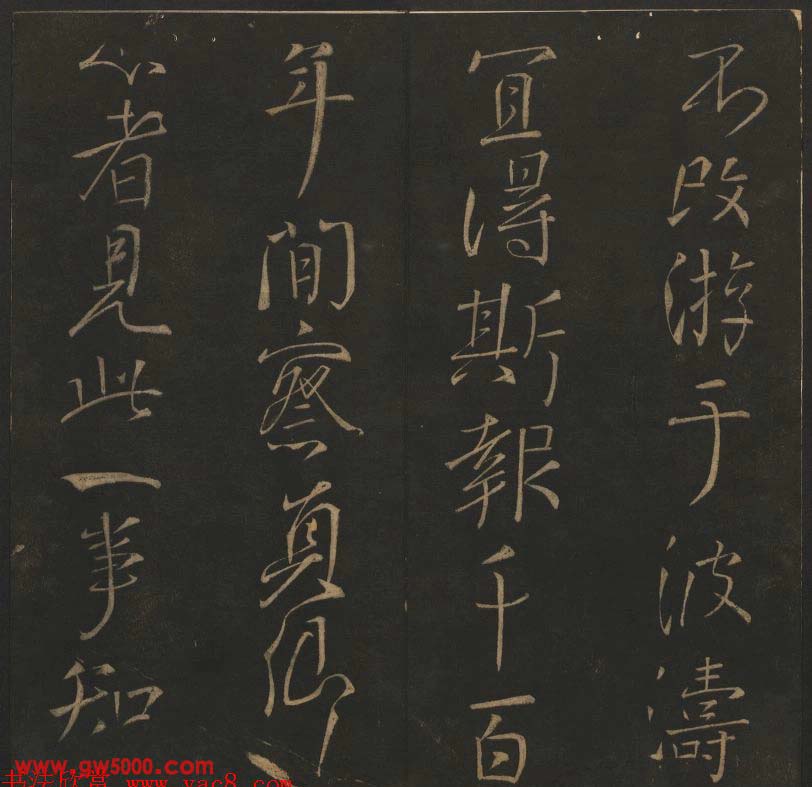 不改游于波濤
宜得斯報千百
年間察真卿
心者見此一事知
www.gw5000.com
书法欣赏 www.yac8.com